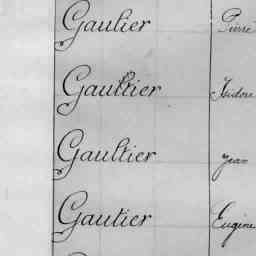 Gaulier Pierre
Gaultier Isidore
Gaultier Jean
Gautier Eugène